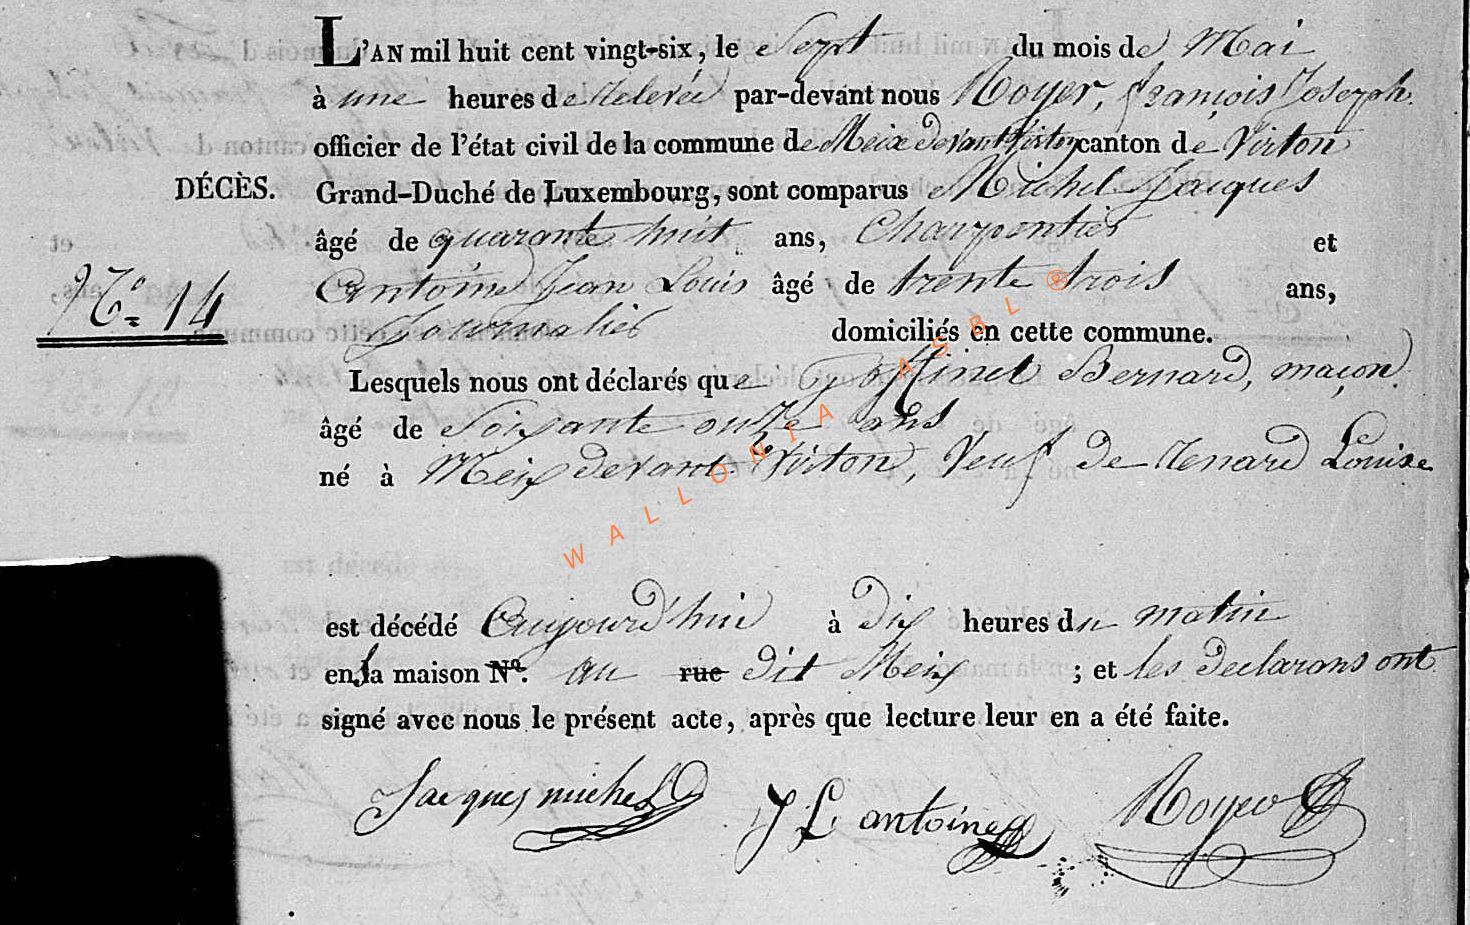 L'AN mil huit cent vingt-six, le Sept du mois de Mai
à une heures de relevée par-devant nous Royer, françois Joseph
officier de l'état civil de la commune de Meix devant Virton canton de Virton
DÉCÈS. Grand-Duché de Luxembourg, sont comparus Michel Jacques
âgé de quarante huit ans, Charpentier et
N.° 14 Antoine Jean Louis âgé de trente trois ans,
Journalier domiciliés en cette commune.
Lesquels nous ont déclarés que Goffinet Bernard, maçon
âgé de Soixante onze ans
né à Meix devant Virton, Veuf de renard Louise
est décédé Aujourd'hui à dix heures du matin
en sa maison N°. au rue dit Meix ; et les declarans ont
signé avec nous le présent acte, après que lecture leur en a été faite.
Jacques michel J L antoine Royer
WALLONIA ASBL ®